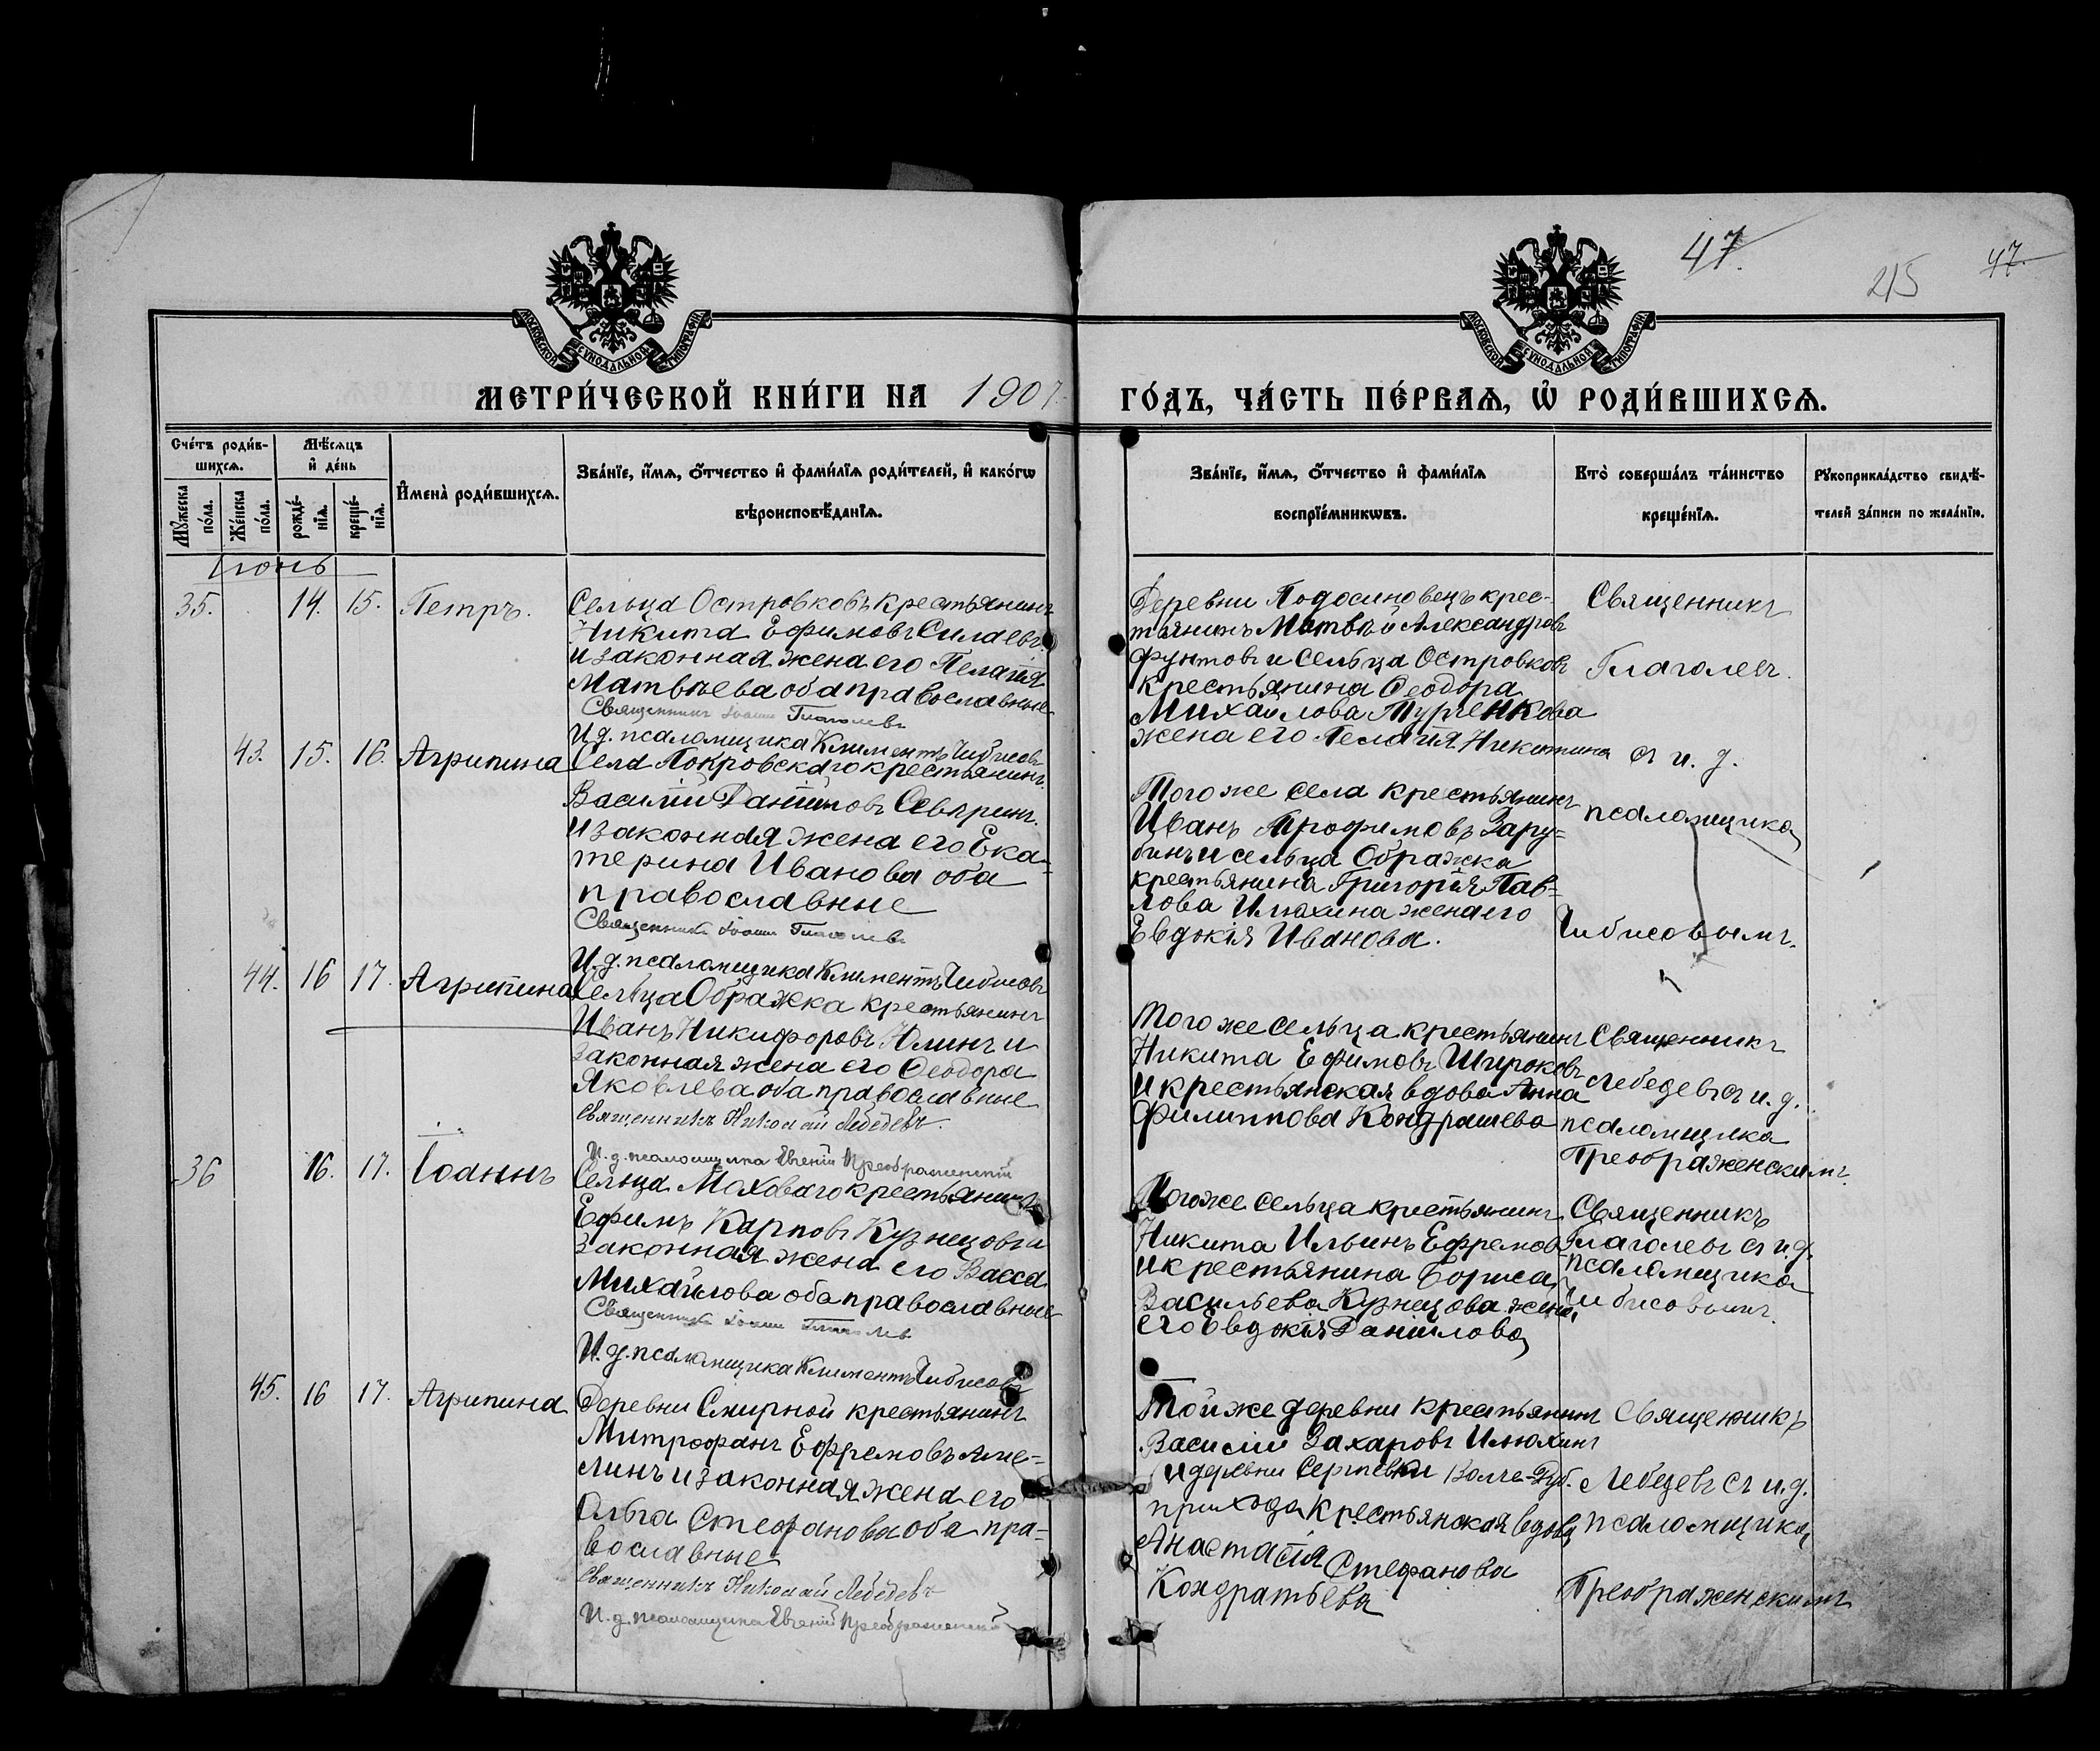 47.
215
47.
МОСКОВСКОЙ СѴНОДАЛЬНОЙ ТИПОГРАФІИ
МОСКОВСКОЙ СѴНОДАЛЬНОЙ ТИПОГРАФІИ
МЕТРИ́ЧЕСКОЙ КНИ́ГИ НА 1907
ГО́ДЪ, ЧА́СТЬ ПЕ́РВАѦ, Ѽ РОДИ́ВШИХСѦ.
Сче́тъ роди́в-
шихсѧ.
Мꙋ́жеска по́ла.
Же́нска по́ла.
Мѣ́сѧцъ
и҆ де́нь
рожде́-
нїѧ.
креще́-
нїѧ.
И҆мена̀ роди́вшихсѧ.
Зва́нїе, и҆́мѧ, ѻ҆́тчество и҆ фами́лїѧ роди́телей, и҆ како́гѡ
вѣроисповѣ́данїѧ.
Зва́нїе, и҆́мѧ, ѻ҆́тчество и҆ фами́лїѧ
воспрїе́мникѡвъ.
Кто̀ соверша́лъ та́инство
креще́нїѧ.
Рꙋкоприкла́дство свидѣ́-
телей за́писи по жела́нїю.
Іюнь
35. 14. 15. Петръ.
Сельца Островковъ крестьянинъ
Никита Ефимовъ Силаевъ
и законная жена его Пелагія
Матвѣева оба православные
Священникъ Іоаннъ Глаголевъ
И.д. псаломщика Климентъ Чибисовъ
Деревни Подосиновецъ крес-
тьянинъ Матвѣй Александровъ
Фунтовъ и сельца Островковъ
крестьянина Ѳеодора
Михайлова Тургенкова
жена его Пелагія Никитина
Священникъ
Глаголевъ
съ и. д.
псаломщика
Чибисовымъ.
43. 15. 16. Агрипина
Села Покровскаго крестьянинъ
Василій Даніиловъ Севринъ.
и законная жена его Ека-
терина Иванова оба
православные
Священникъ Іоаннъ Глаголевъ
И.д. псаломщика Климентъ Чибисовъ
Того же села крестьянинъ
Иванъ Трофимовъ Зару-
бинъ и сельца Ображка
крестьянина Григорія Пав-
лова Илюхина жена его
Евдокія Иванова.
44. 16 17. Агрипина
Сельца Ображка крестьянинъ
Иванъ Никифоровъ Юлинъ и
законная жена его Ѳеодора
Яковлева оба православные
Священникъ Николай Лебедевъ.
И.д. псаломщика Евгеній Преображенскій
Того же сельца крестьянинъ
Никита Ефимовъ Широковъ
и крестьянская вдова Анна
Филиппова Кондрашева
Священникъ
Лебедевъ съ и. д.
псаломщика
Преображенскимъ.
36 16. 17. Іоаннъ
Сельца Моховаго крестьянинъ
Ефимъ Карповъ Кузнецовъ и
законная жена его Васса
Михайлова оба православные
Священникъ Іоаннъ Глаголевъ
И.д. псаломщика Климентъ Чибисовъ
Того же сельца крестьянинъ
Никита Ильинъ Ефремовъ
и крестьянина Бориса
Васильева Кузнецова жена
его Евдокія Даніилова
Священникъ
Глаголевъ съ и.д.
псаломщика
Чибисовымъ.
45. 16 17. Агрипина
Деревни Смирной крестьянинъ
Митрофанъ Ефремовъ Аме-
линъ и законная жена его
Ольга Стефанова оба пра-
вославные
Священникъ Николай Лебедевъ
И.д. псаломщика Евгеній Преображенскій
Той же деревни крестьянинъ
Василій Захаровъ Илюхинъ
и деревни Сергѣевки Волче-Дуб.
прихода крестьянская вдова
Анастасія Стефанова
Кондратьева
Священникъ
Лебедевъ съ и.д.
псаломщика
Преображенскимъ